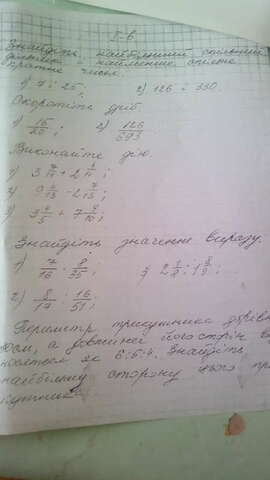 5-6.
Знайдіть найбільший спільний
дільник і найменше спільне
кратне чисел.
1) 7 і 25; 2) 126 і 330.
Скоротіть дріб.
1) 16/20; 2) 126/693;
Виконайте дію.
1) 3 7/11 + 2 1/11;
2) 9 4/13 - 2 7/13;
3) 3 4/5 + 7 9/10;
Знайдіть значення виразу.
1) 7/16 · 8/35; 3 2 1/2 : 1 3/5;
2) 8/17 : 16/51;
Периметр трикутника
а довжини його сторін
як 6:5:4. Знайдіть
найбільшу сторону цього